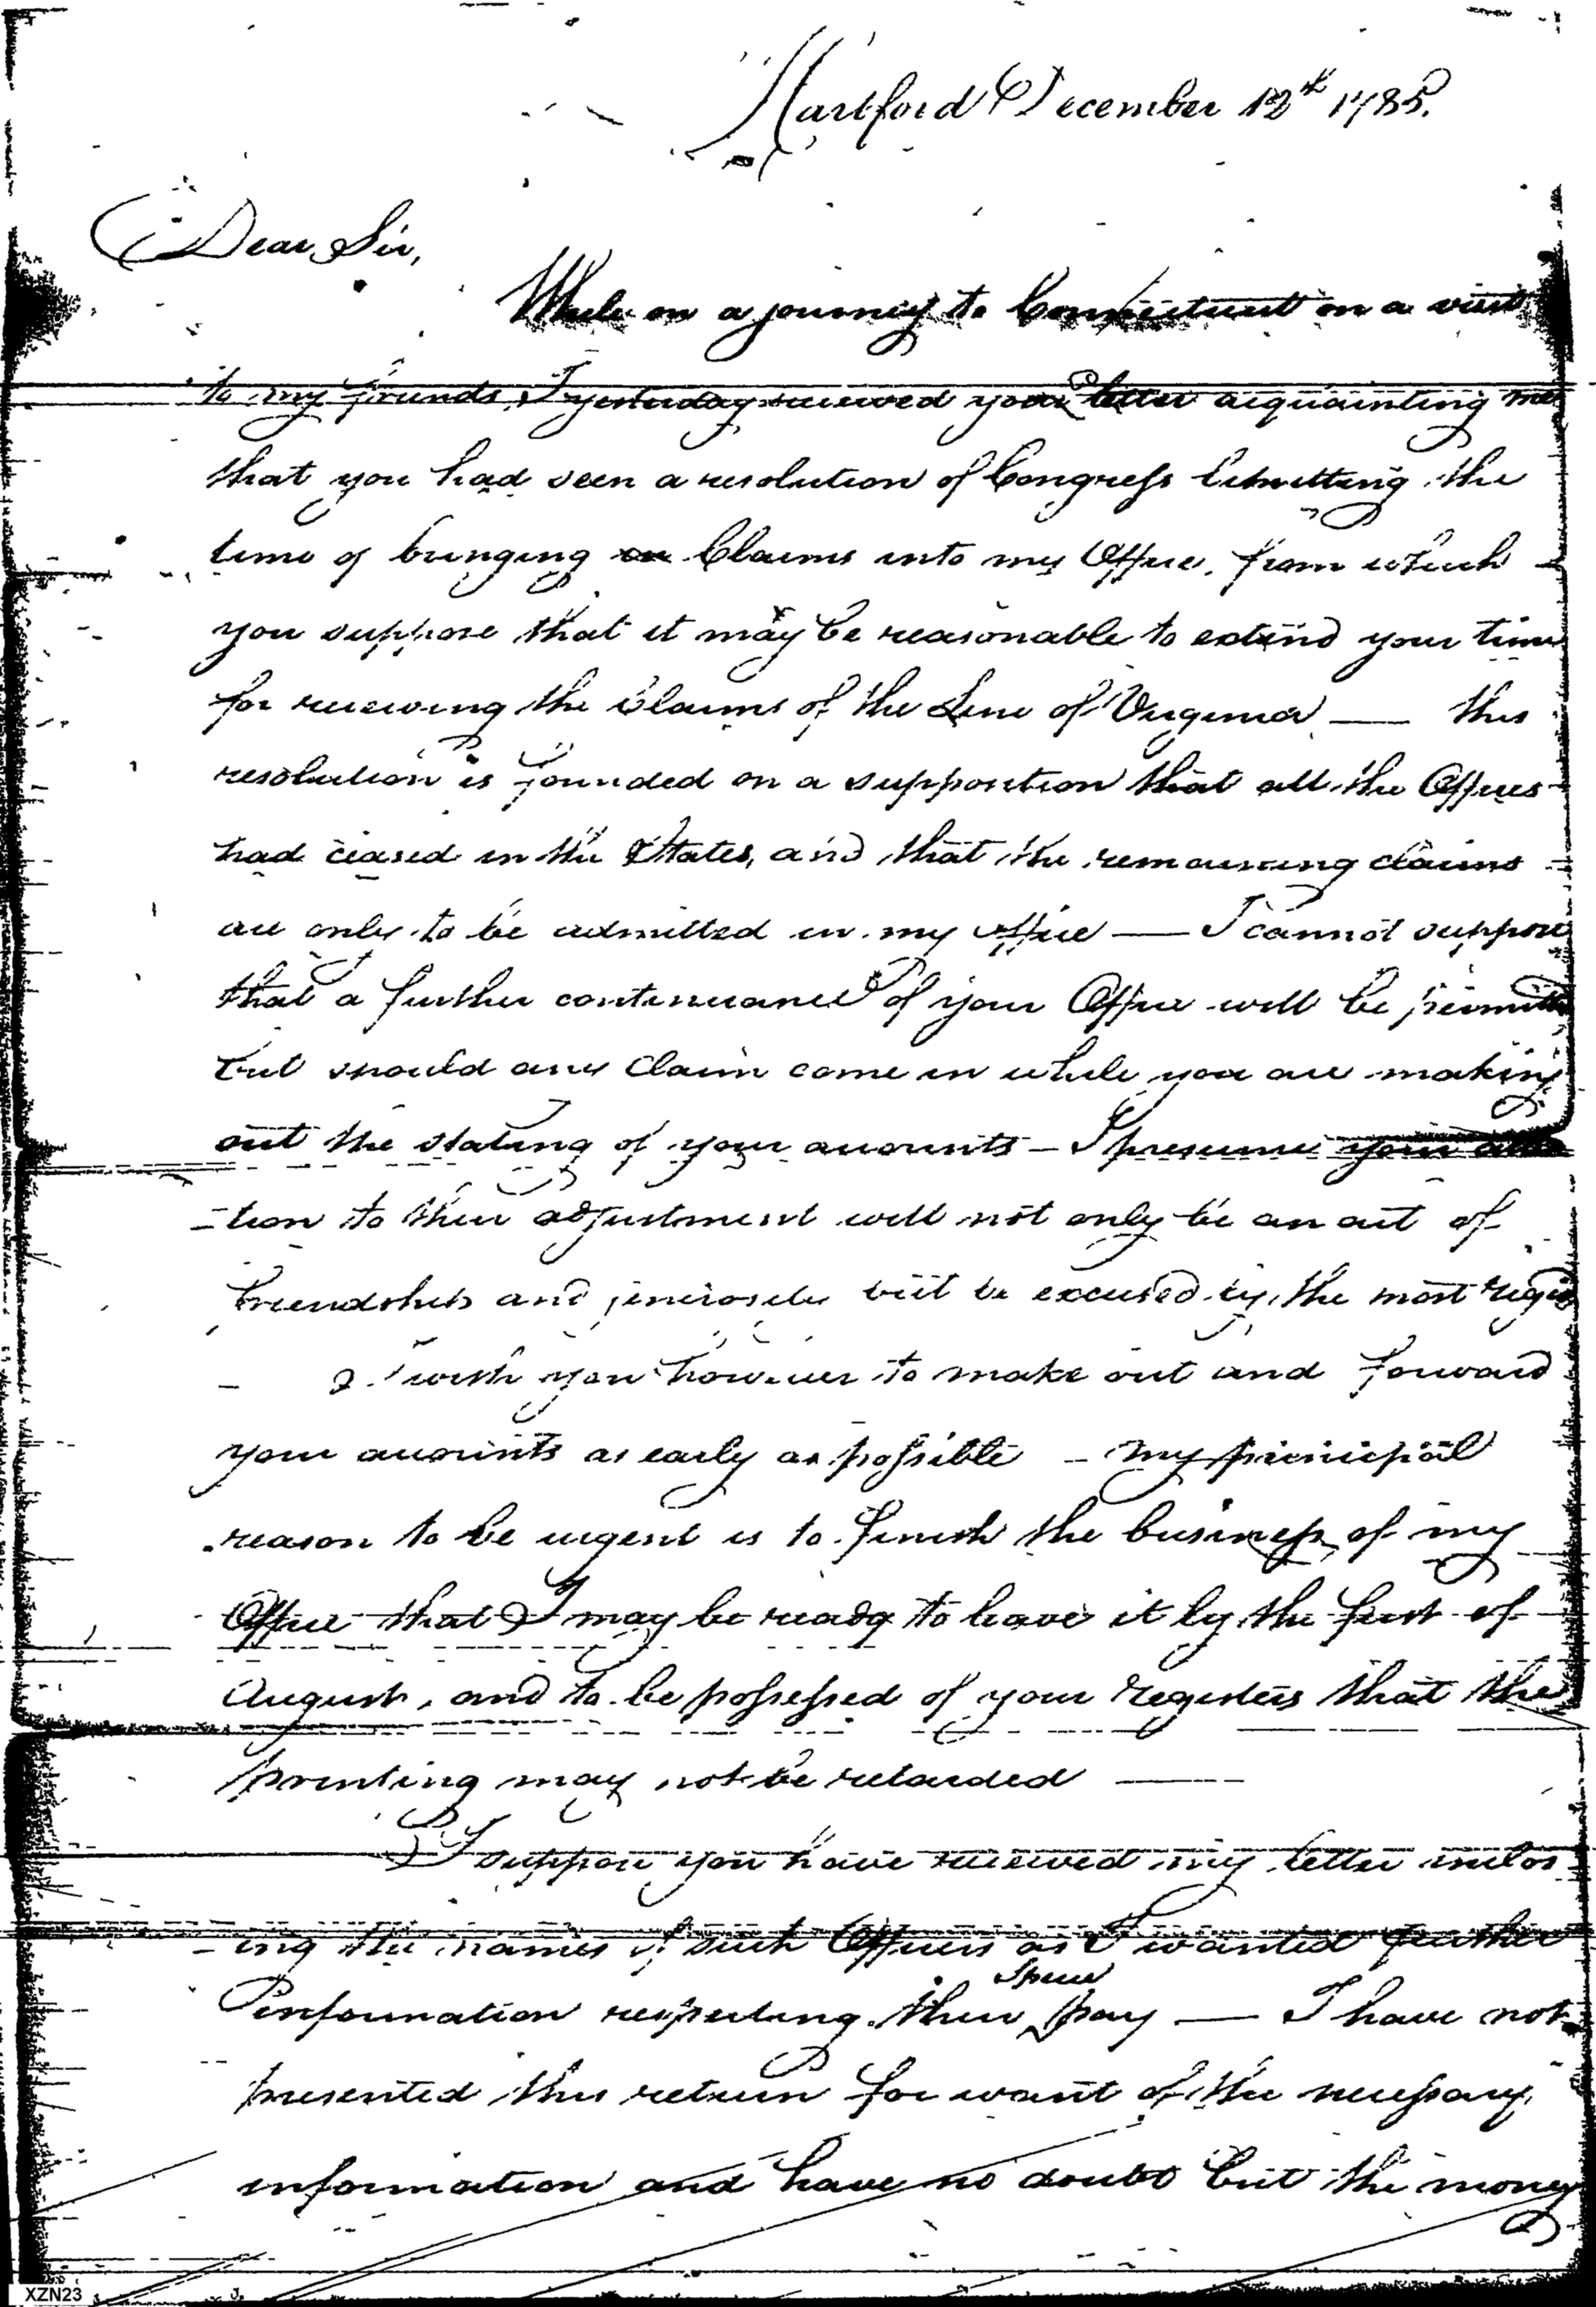 Hartford December 12th 1785.
Dear Sir,
While on a journey to Connecticut on a visit
to my friends, I yesterday received your letter acquainting me
that you had seen a resolution of Congress limitting the
time of bringing in Claims into my Office, from which
you suppose that it may be reasonable to extend your time
for receiving the Claims of the Line of Virginia — this
resolution is founded on a supposition that all the Offices
had ceased in the States, and that the remaining claims
are only to be admitted in my office — I cannot suppose
that a further continuance of your Office will be
but should any Claim come in while you are making
out the stating of your accounts — I presume your
-tion to their adjustment will not only be an act of
friendship and generosity but be excused by the most rigid
— I wish you however to make out and forward
your accounts as early as possible — my principal
reason to be urgent is to finish the business of my
Office that I may be ready to leave it by the first of
August, and to be possessed of your Registers that the
printing may not be retarded —
I suppose you have received my letter inclos
-ing the names of such Officers as I wanted further
information respecting their Specie pay — I have not
presented this return for want of the necessary
information and have no doubt but the money
XZN23